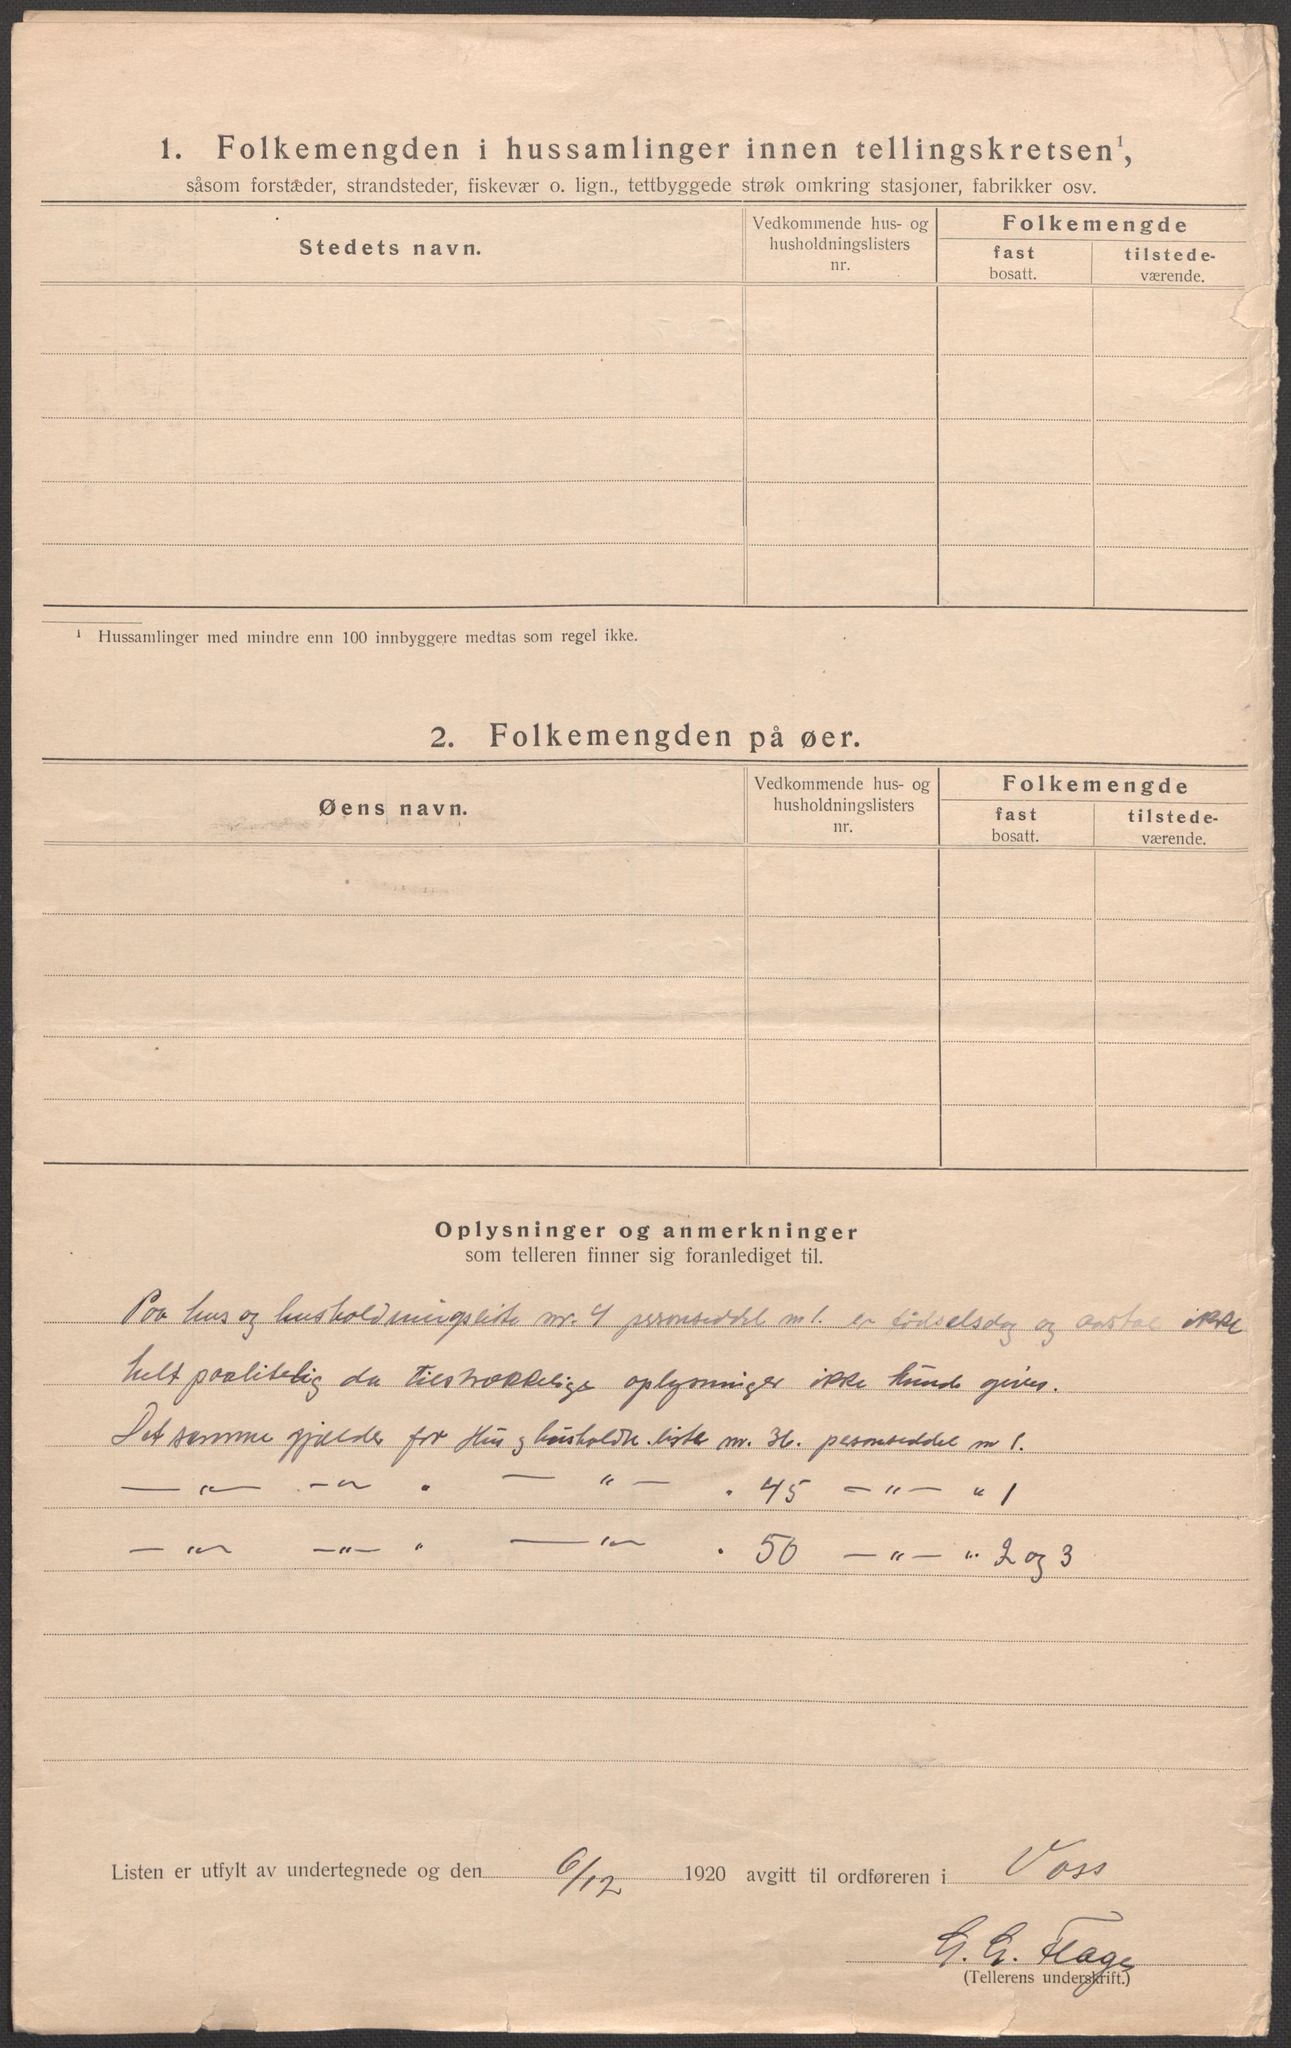 1. Folkemengden i hussamlinger innen tellingskretsen¹,
såsom forstæder, strandsteder, fiskevær o. lign., tettbyggede strøk omkring stasjoner, fabrikker osv.
Stedets navn.
Vedkommende hus- og
husholdningslisters
nr.
Folkemengde
fast
bosatt.
tilstede-
værende.
¹ Hussamlinger med mindre enn 100 innbyggere medtas som regel ikke.
2. Folkemengden på øer.
Øens navn.
Vedkommende hus- og
husholdningslisters
nr.
Folkemengde
fast
bosatt.
tilstede-
værende.
Oplysninger og anmerkninger
som telleren finner sig foranlediget til.
Paa hus og husholdningsliste nr. 4 personseddel nr 1. er fødselsdag og aastal ikke
helt paalitelig da tilstrækkelige oplysninger ikke kunde gives.
Det samme gjælder for Hus og husholdn. liste nr. 36. personseddel nr 1.
— „ — — „ — „ — „ — „ 45 — „ — „ 1
— „ — — „ — „ — „ — „ 50 — „ — „ 2 og 3
Listen er utfylt av undertegnede og den 6/12 1920 avgitt til ordføreren i Voss
G. G. Flage
(Tellerens underskrift.)